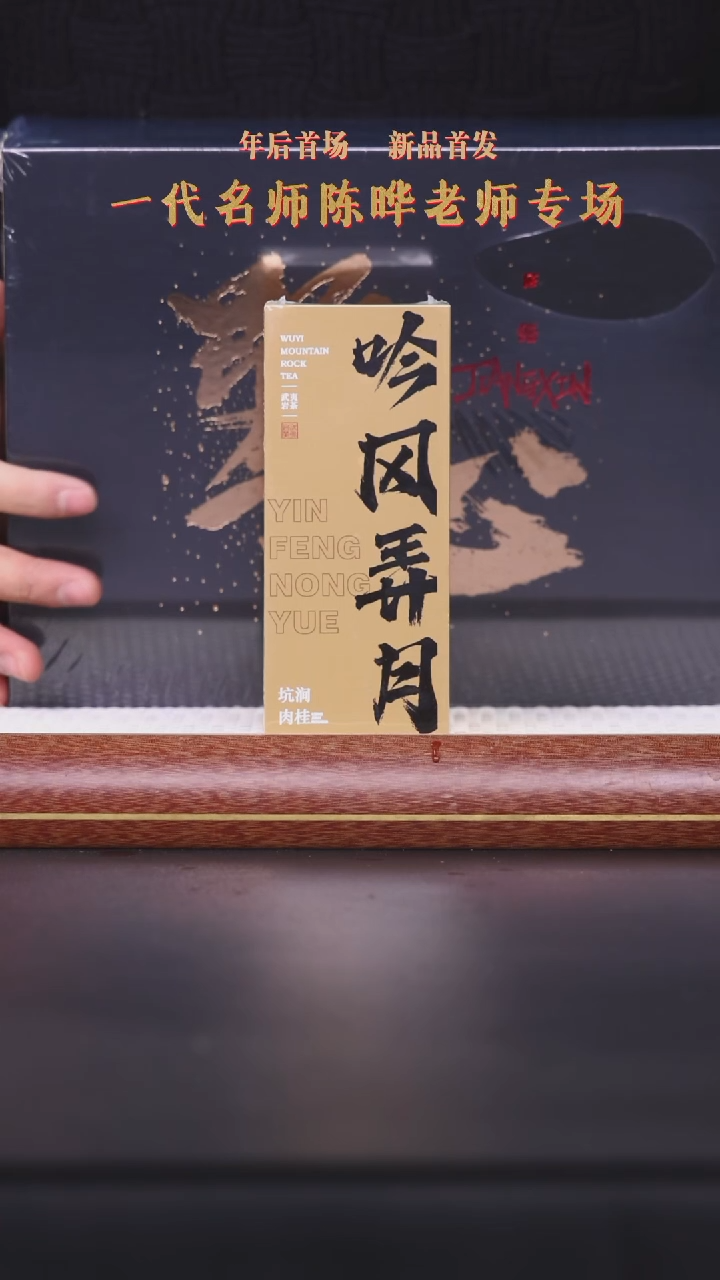 年后首场 新品首发
一代名师陈晔老师专场
WUYI
MOUNTAIN
ROCK
TEA
武夷
岩茶
吟风弄月
YIN
FENG
NONG
YUE
坑涧
肉桂
JIANGXIN